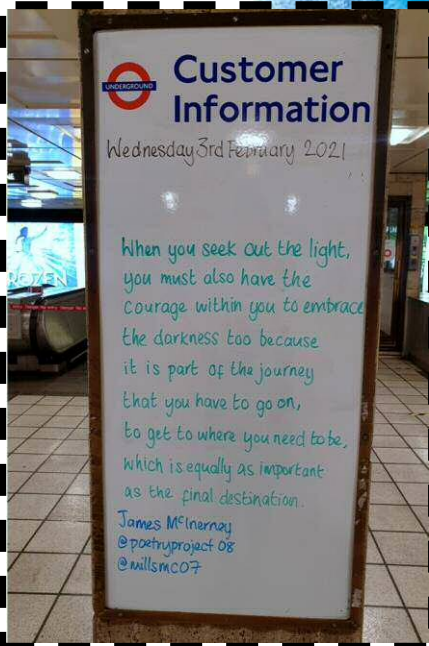 UNDERGROUND
Customer
Information
Wednesday 3rd February 2021
When you seek out the light,
you must also have the
courage within you to embrace
the darkness too because
it is part of the journey
that you have to go on,
to get to where you need to be,
which is equally as important
as the final destination.
James McInerney
@poetryproject 08
@millsmc07
FROZEN